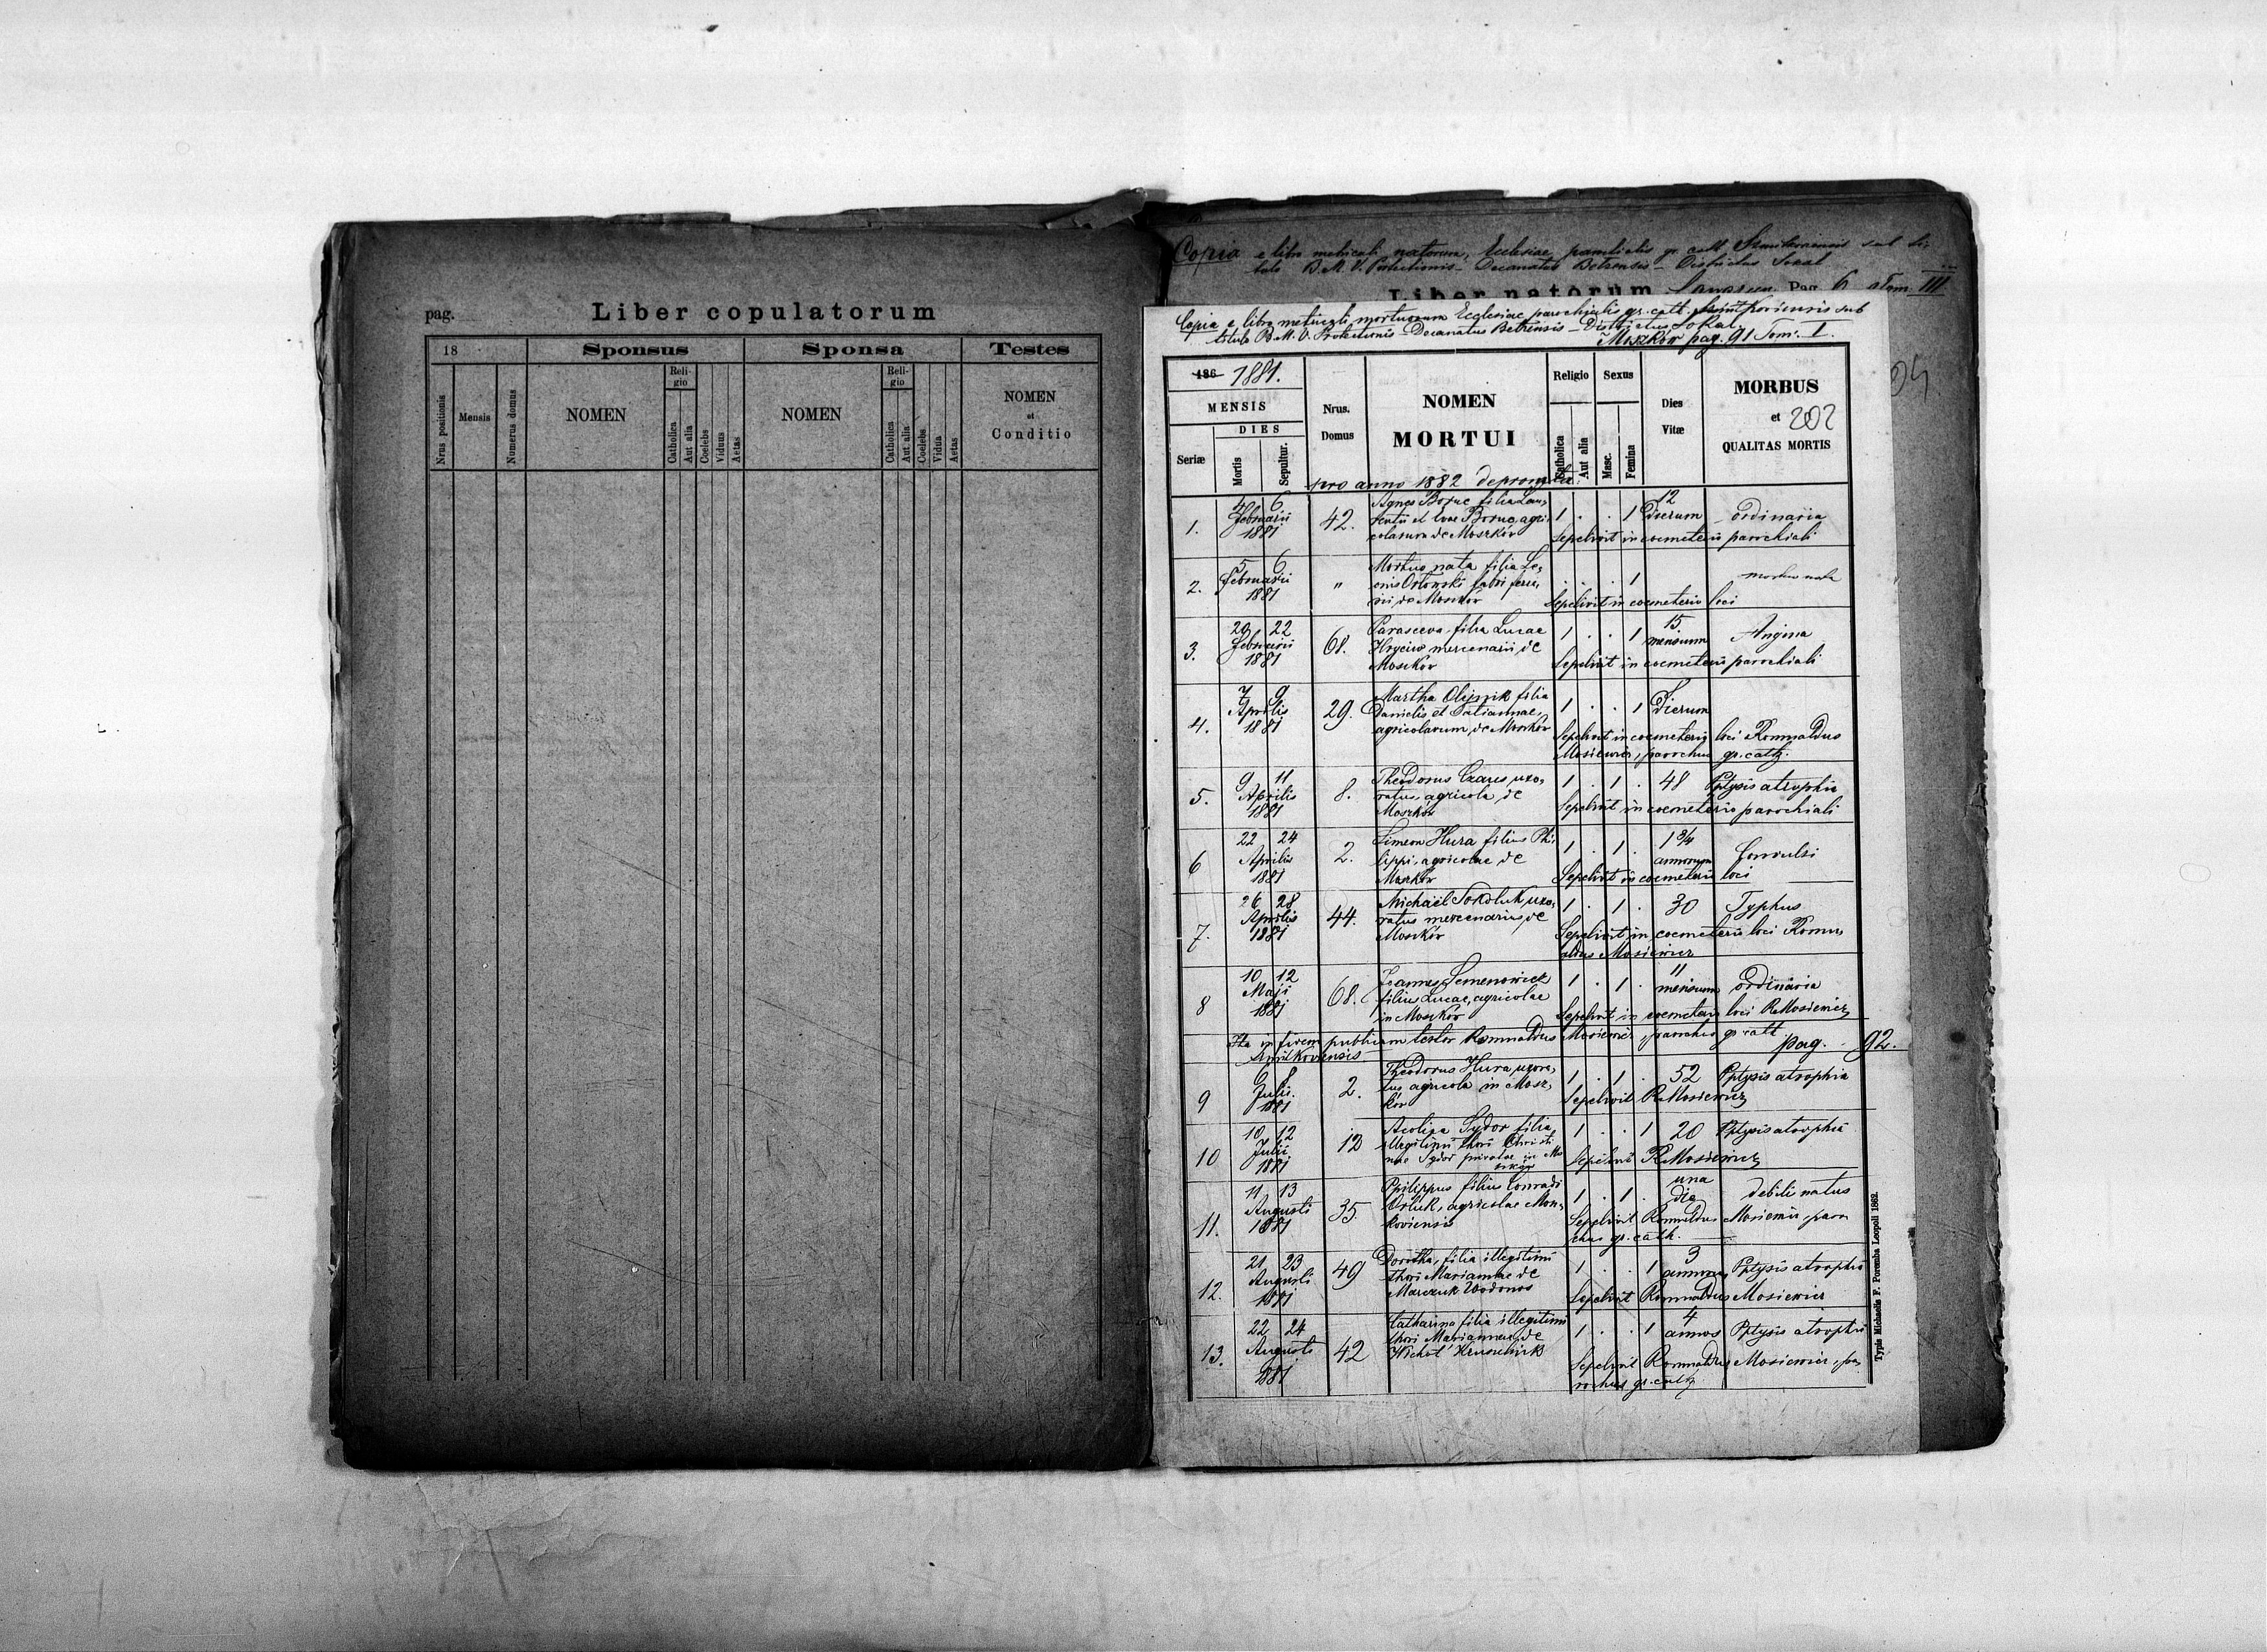 pag.
Liber copulatorum
18
Sponsus
Sponsa
Testes
Nrus positionis
Mensis
Numerus domus
NOMEN
Religio
Catholica
Aut alia
Coelebs
Viduus
Aetas
NOMEN
Religio
Catholica
Aut alia
Coelebs
Vidua
Aetas
NOMEN
et
Conditio
Copia e libro metricali natorum, Ecclesiae parochialis gr. cath. sub ti-
tulo B.M.V. Protectionis - Decanatus Belzensis - Districtus Sokal
Liber natorum Pag. 6 Tom: III
Copia e libro metricali mortuorum Ecclesiae parochialis gr. cath. sub
titulo B.M.V. Protectionis - Decanatus Belzensis - Districtus Sokal.
Moszków pag. 91 Tom: I.
186 1881.
MENSIS
DIES
Seriæ
Mortis
Sepultur.
Nrus.
Domus
NOMEN
MORTUI
Religio
Catholica
Aut alia
Sexus
Masc.
Femina
Dies
Vitæ
MORBUS
et 202
QUALITAS MORTIS
pro anno 1882
1. 4 6 Februarii 1881 42. Agnes Boruc filia Lau-
rentii et Evae Boruc agri-
colarum de Moszków 1 . . 1 12 Dierum ordinaria
Sepelivit in coemeterio parochiali
2. 5 6 Februarii 1881 " Mortua nata filia
fabri ferra-
rii de Moszków . . . 1
Sepelivit in coemeterio loci
3. 20 22 Februarii 1881 68. Parasceva filia Lucae
mercenarii de
Moszków 1 . . 1 15 mensium Angina
Sepelivit in coemeterio parochiali
4. 7 9 Aprilis 1881 29. Martha Olijnik filia
Danielis et Tatiannae,
agricolarum, de Moszków 1 . . 1 Dierum
Sepelivit in coemeterio loci Romualdus
Mosiewicz, parochus gr. cath.
5. 9 11 Aprilis 1881 8. Theodorus uxo-
ratus, agricola, de
Moszków 1 . 1 . 48 Phtysis atrophia
Sepelivit in coemeterio parochiali
6 22 24 Aprilis 1881 2. Simeon Hura filius Phi-
lippi, agricolae de
Moszków 1 . 1 . 1 3/4 annorum Convulsi
Sepelivit in coemeterio loci
7. 26 28 Aprilis 1881 44. Michaël Sokoluk uxo-
ratus mercenarius, de
Moszków 1 . 1 . 30 Typhus
Sepelivit in coemeterio loci Romu-
aldus Mosiewicz
8 10 12 Maji 1881 68. Joannes Semenowicz
filius Lucae, agricolae
in Moszków 1 . 1 . 11 mensium ordinaria
Sepelivit in coemeterio loci R Mosiewicz
Ita in fidem publicam testor Romualdus Mosiewicz, parochus gr. cath
pag. 92.
9 6 8 Julii 1881 2. Theodorus Hura, uxora-
tus agricola in Mosz-
ków 1 . 1 . 52 Phtysis atrophia
Sepelivit R Mosiewicz
10 10 12 Julii 1881 12 Sydor filia
illegitimi thori Christi-
nae Sydor privatae in Mo-
szków 1 . . 1 20 Phtysis atrophia
Sepelivit R Mosiewicz
11. 11 13 Augusti 1881 35. Philippus filius Conradi
Orluk, agricolae Mosz-
koviensis 1 . 1 . una dia debili natus
Sepelivit Romualdus Mosiewicz, paro-
chus gr. cath.
12. 21 23 Augusti 1881 49 Dorotha, filia illegitimi
thori Mariannae de
Marczuk Wodonos 1 . . 1 3 annorum Phtysis atrophia
Sepelivit Romualdus Mosiewicz
13. 22 24 Augusti 1881 42 Catharina filia illegitimi
thori Mariannae, de
1 . . 1 4 annos Phtysis atrophia
Sepelivit Romualdus Mosiewicz, pa-
rochus gr. cath.
Typis Michaelis F. Poremba Leopoli 1862.